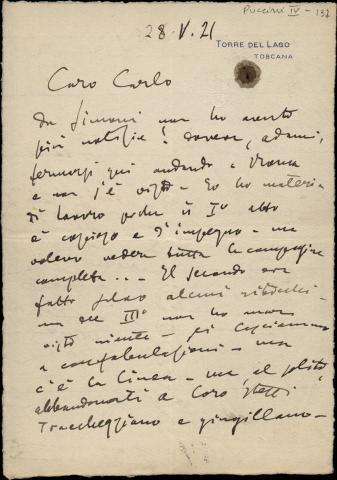 Puccini IV - 132
28. V. 21
TORRE DEL LAGO
TOSCANA
Caro Carlo
Da Simoni non ho avuto
più notizie! doveva, Adami,
fermarsi qui andando a Roma
e non s'è visto - Io ho materia
di lavoro perchè il I° atto
è copioso e d'impegno - ma
volevo vedere tutta la compagine
completa... - Il secondo era
fatto salvo alcuni ritocchi -
ma del III° non ho mai
visto niente - 
a confabulazioni - ma
c'è la linea - ma, al solito,
abbandonati a loro stessi
traccheggiano e gingillano -